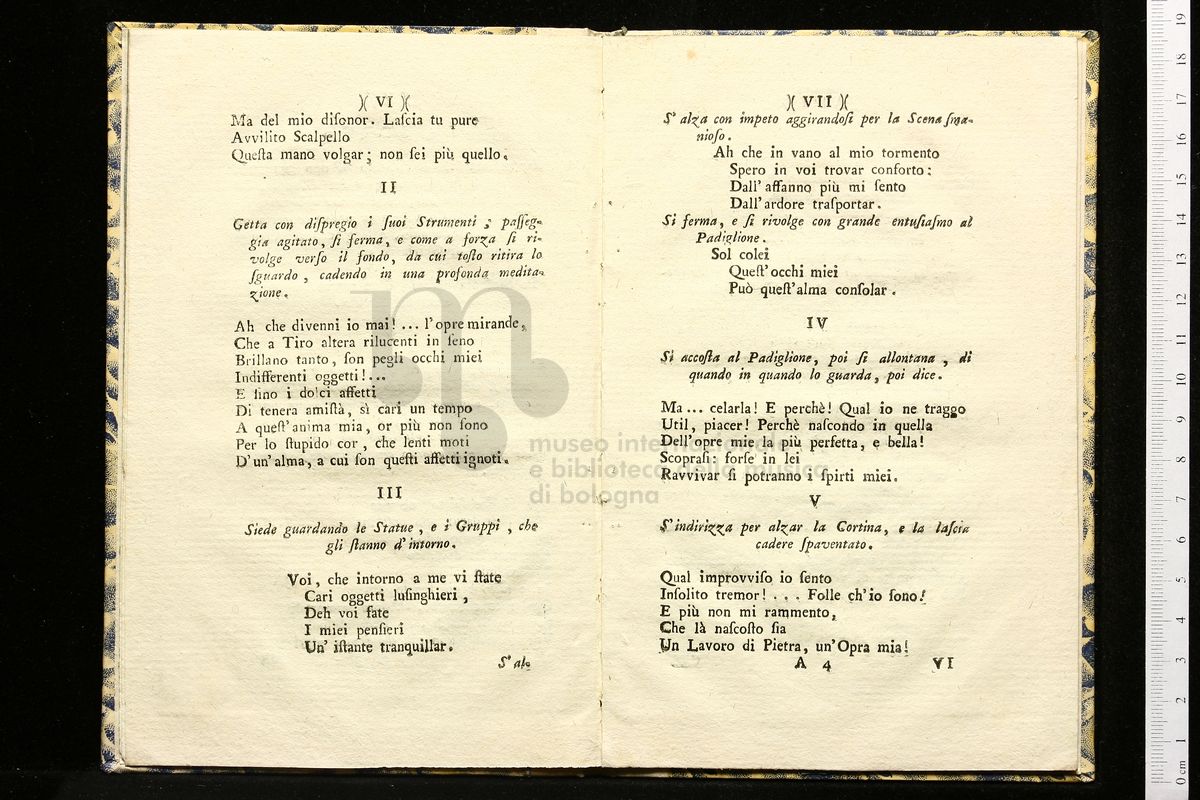 )( VI )(
Ma del mio diſonor. Laſcia tu pure
Avvilito Scalpello
Queſta mano volgar; non ſei più quello.
II
Getta con diſpregio i ſuoi Strumenti; paſſeg-
gia agitato, ſi ferma, e come a forza ſi ri-
volge verſo il fondo, da cui toſto ritira lo
ſguardo, cadendo in una profonda medita-
zione.
Ah che divenni io mai! ... l'opre mirande,
Che a Tiro altera rilucenti in ſeno
Brillano tanto, ſon pegli occhi miei
Indifferenti oggetti!...
E ſino i dolci affetti
Di tenera amiſtà, sì cari un tempo
A queſt'anima mia, or più non ſono
Per lo ſtupido cor, che lenti moti
D'un'alma, a cui ſon queſti affetti ignoti.
III
Siede guardando le Statue, e i Gruppi, che
gli ſtanno d'intorno.
Voi, che intorno a me vi ſtate
Cari oggetti luſinghieri,
Deh voi fate
I miei penſieri
Un' iſtante tranquillar.
S'al-
)( VII )(
S'alza con impeto aggirandoſi per la Scena ſma-
nioſo.
Ah che in vano al mio tormento
Spero in voi trovar conforto:
Dall' affanno più mi ſento
Dall' ardore traſportar.
Si ferma, e ſi rivolge con grande entuſiaſmo al
Padiglione.
Sol colei
Queſt' occhi miei
Può queſt'alma conſolar.
IV
Si accoſta al Padiglione, poi ſi allontana, di
quando in quando lo guarda, poi dice.
Ma... celarla! E perchè! Qual io ne traggo
Util, piacer! Perchè naſcondo in quella
Dell'opre mie la più perfetta, e bella!
Scopraſi: forſe in lei
Ravvivar ſi potranno i ſpirti miei.
V
S'indirizza per alzar la Cortina, e la laſcia
cadere ſpaventato.
Qual improvviſo io ſento
Inſolito tremor! . . . Folle ch'io ſono!
E più non mi rammento,
Che là naſcoſto ſia
Un Lavoro di Pietra, un'Opra mia!
A 4 VI
museo internazionale
e biblioteca della musica
di bologna
0 cm 1 2 3 4 5 6 7 8 9 10 11 12 13 14 15 16 17 18 19